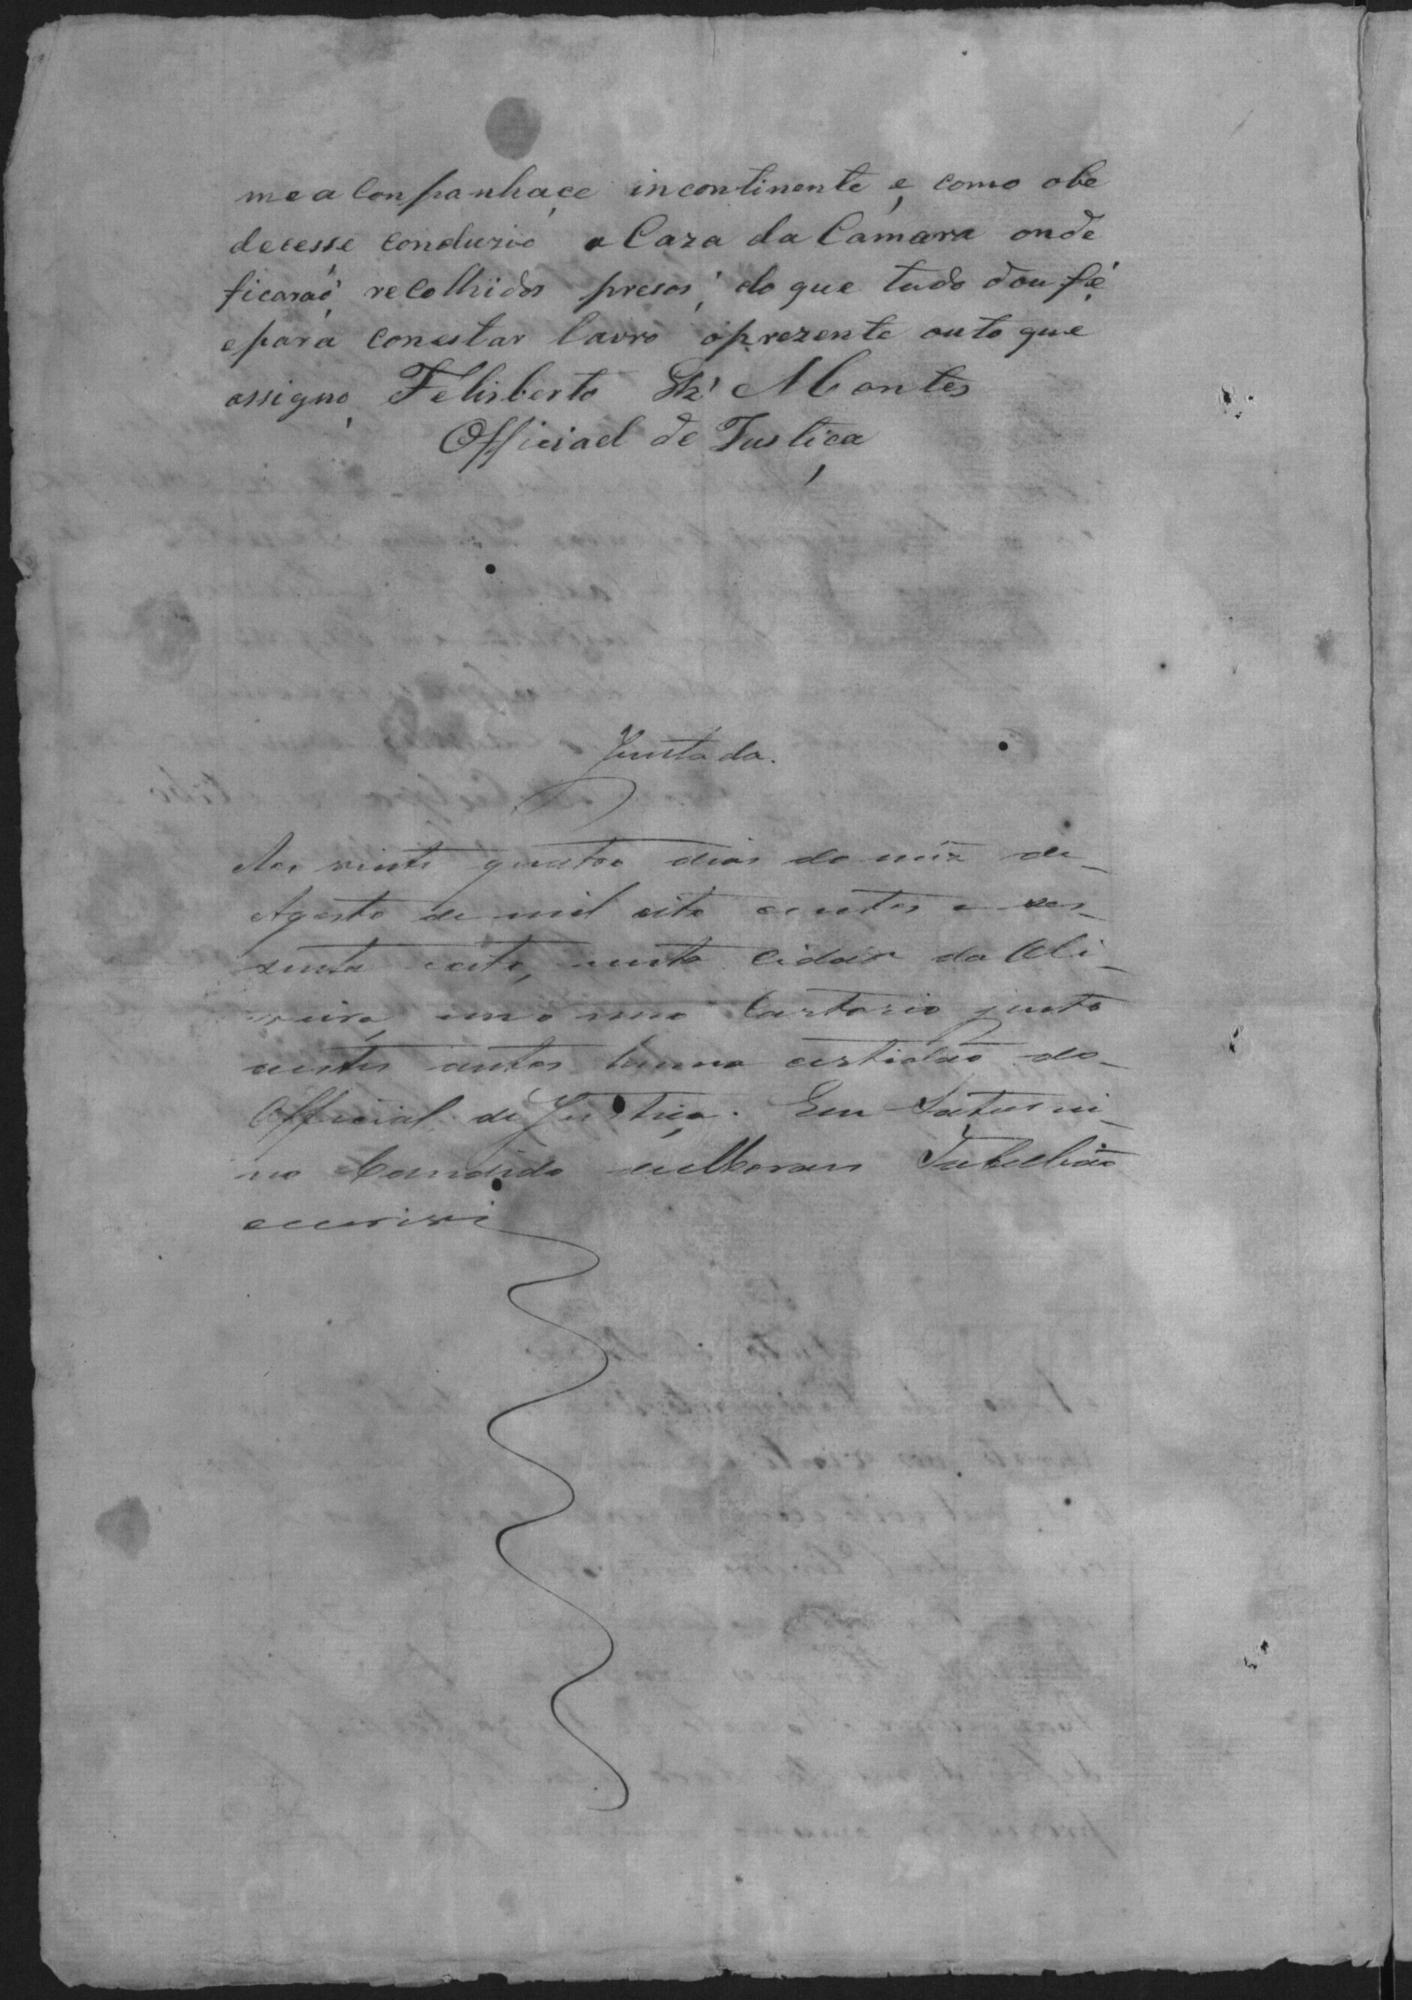 me a Conpanhaçe incontinente e, como obe
decesse conduzio a Caza da Camara onde
ficaraõ recolhidos presos, do que tudo dou fé
e para conestar lavro o prezente auto que
assigno, Felisberto Montes
Officiael de Justiça
Juntada.
Aos vinte quatro dias do mez de
Agosto de mil oito centos e ses_
senta e oito, nesta Cidade da Oli_
veira, em o meu Cartorio junto
a estes autos huma certidaõ do
Official de Justiça. Eu Saturni_
no Candido de Moraes Tabelliaõ
escrivi